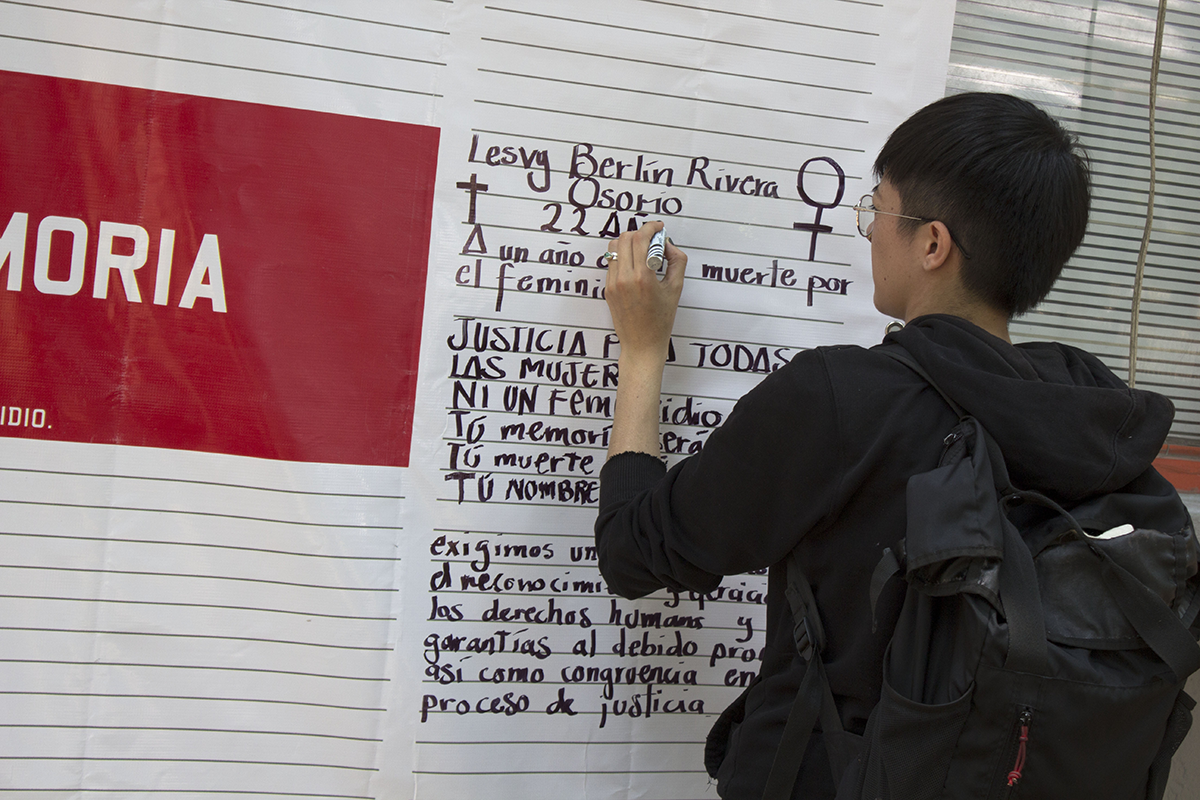 MORIA
IDIO.
Lesvy Berlín Rivera
Osorio
22 AÑ
A un año muerte por
el feminic
JUSTICIA TODAS
LAS MUJER
NI UN Feminicidio
TÚ memoria será
TÚ muerte
TÚ NOMBRE
exigimos un
el reconocimi
los derechos humans y
garantías al debido pro
así como congruencia en
proceso de justicia